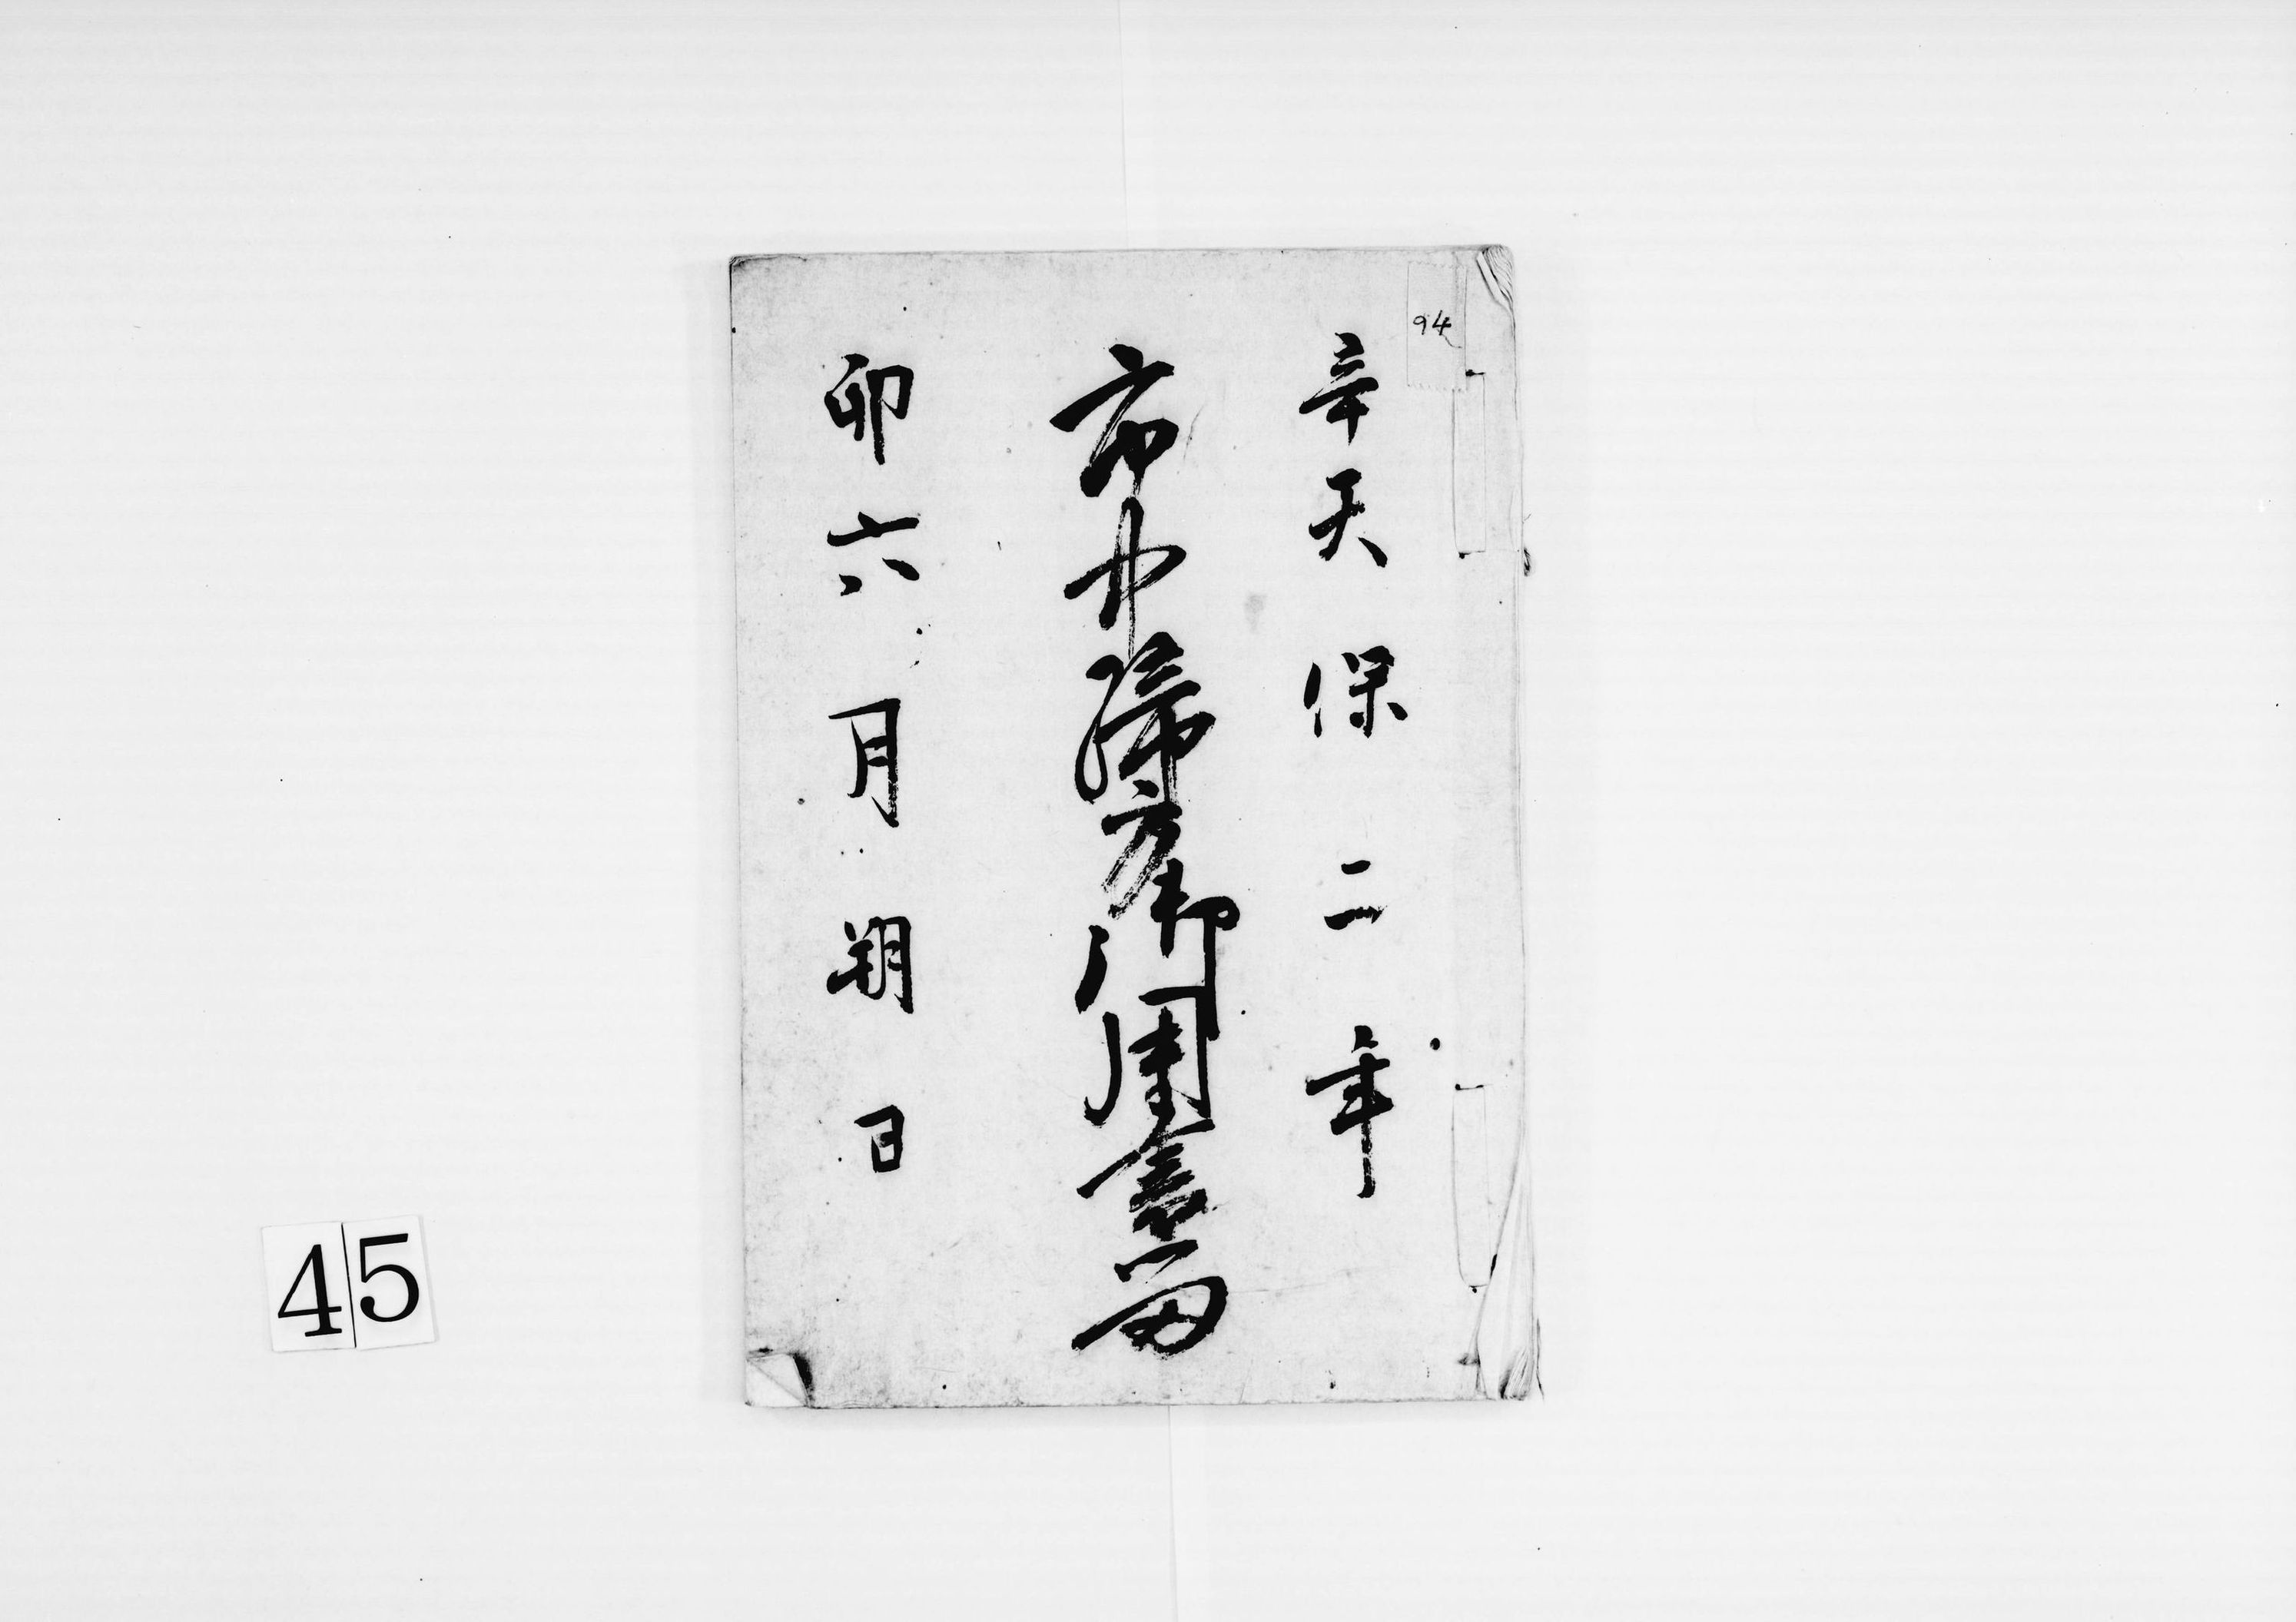 94
辛天保二年
市中締方御用書留
卯六月朔日
45